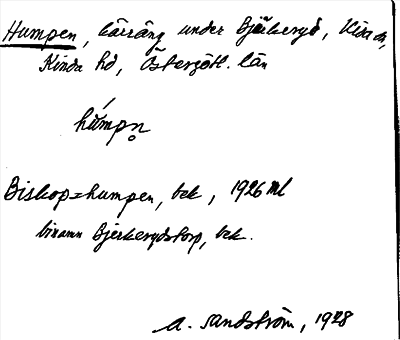 Humpen, kärräng under Björkeryd, Kisa sn,
Kinda hd, Östergötl. län
húmpn̥
Biskop=humpen, bek, 1926 ml
binamn Björkerydstorp, bek.
A. Sandström, 1928